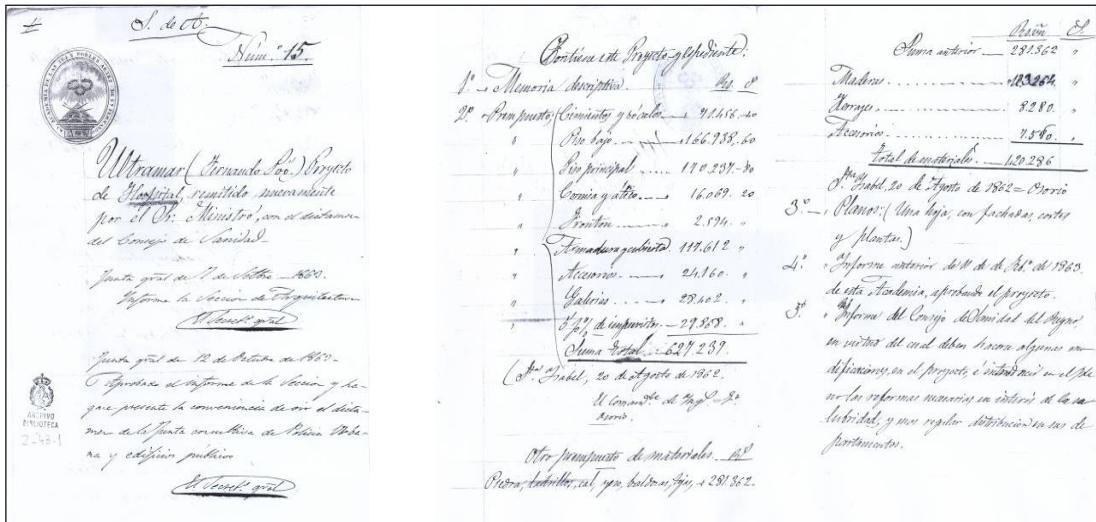 S. de A.
Núm.º 15.
Ultramar (Fernando Póo) Proyecto
de Hospital, remitido nuevamente
por el Sr. Ministro, con el dictamen
del Consejo de Sanidad
Junta gral de 7 de Setbre
Informe la Sección de Arquitectura
El Secret.º gral
Junta gral de 12 de Octubre de 1863
Aprobado el informe de la Sección y ha-
que presente la conveniencia de oir el dicta-
men de la Junta consultiva de Policia Urba-
na y edificios publicos
El Secret.º gral
ARCHIVO
BIBLIOTECA
2-48-1
Contiene este Proyecto y Espediente:
1.º Memoria descriptiva
2.º Presupuesto, Cimientos y zócalos 91.456-40
" Piso bajo 166.938,60
" Piso principal 170.237-80
" Cornisa y ático 16.069.20
" Fronton 2.594.
" Armadura y cubierta 117.612 "
" Accesorios 24.160. "
" Galerias 28.402. "
" de imprevistos 29.868. "
Suma total 627.239.
(Sta. Isabel, 20 de Agosto de 1862.
El Comandte de Ings
Osorio.
Otro presupuesto de materiales
Piedra, ladrillos, cal, yeso, baldosas, tejas, 281.362.
Suma anterior 281.362 "
Maderas
Herrajes 8.280. "
Accesorios 7.560. "
Total de materiales 420.286
Sta. Isabel, 20 de Agosto de 1862 = Osorio
3.º Planos: (Una hoja, con fachadas, cortes
y plantas.)
4.º Informe anterior de 11 de de 1863.
de esta Academia, aprobando el proyecto.
5.º Informe del Consejo de Sanidad del Reyno,
en virtud del cual deben hacerse algunas mo-
dificaciones, en el proyecto, é en el pla-
no las reformas necesarias en interés de la sa-
lubridad, y mas regular distribucion en sus de-
partamentos.